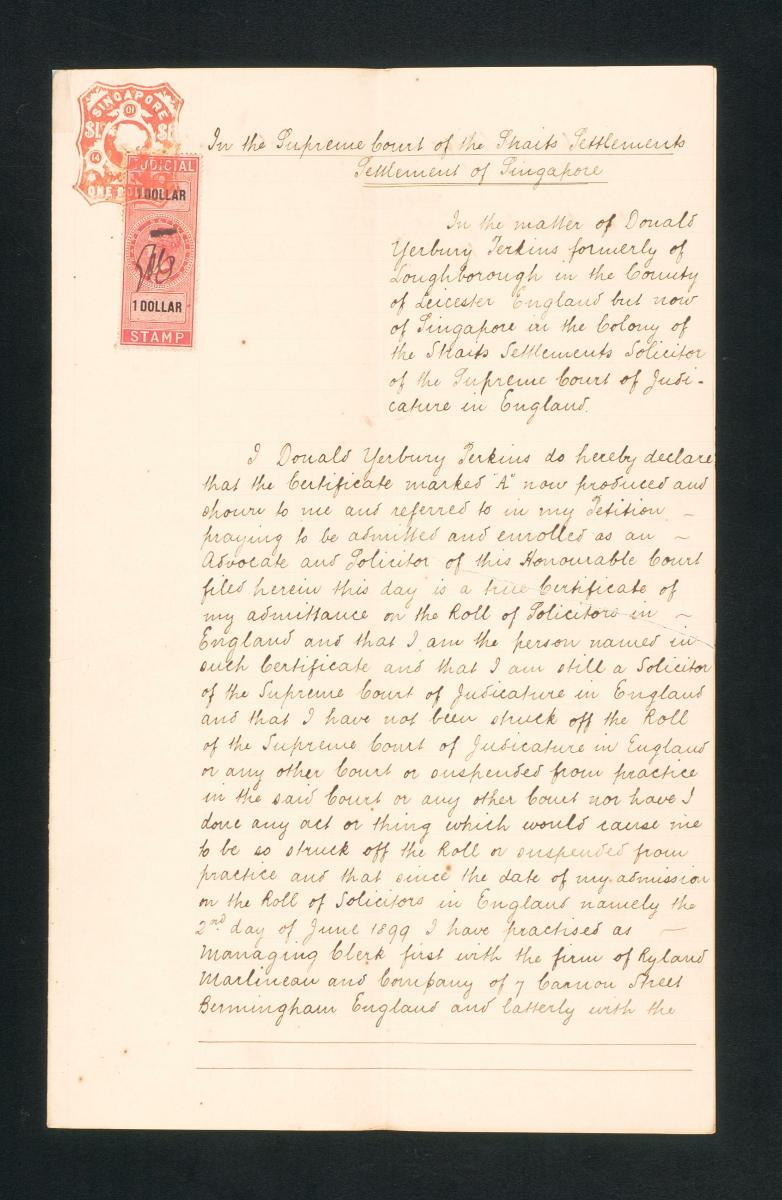 SINGAPORE
01
$1 $1
14
ONE DO
JUDICIAL
1 DOLLAR
1 DOLLAR
STAMP
In the Supreme Court of the Straits Settlements
Settlement of Singapore
In the matter of Donald
Yerbury Perkins formerly of
Loughborough in the County
of Leicester England but now
of Singapore in the Colony of
the Straits Settlements Solicitor
of the Supreme Court of Judi-
cature in England.
I Donald Yerbury Perkins do hereby declare
that the Certificate marked "A" now produced and
shown to me and referred to in my Petition
praying to be admitted and enrolled as an
Advocate and Solicitor of this Honourable Court
filed herein this day is a true Certificate of
my admittance on the Roll of Solicitors in
England and that I am the person named in
such Certificate and that I am still a Solicitor
of the Supreme Court of Judicature in England
and that I have not been struck off the Roll
of the Supreme Court of Judicature in England
or any other Court or suspended from practice
in the said Court or any other Court nor have I
done any act or thing which would cause me
to be so struck off the Roll or suspended from
practice and that since the date of my admission
on the Roll of Solicitors in England namely the
2nd day of June 1899 I have practised as
Managing Clerk first with the firm of Ryland
Martineau and Company of 7 Cannon Street
Birmingham England and latterly with the